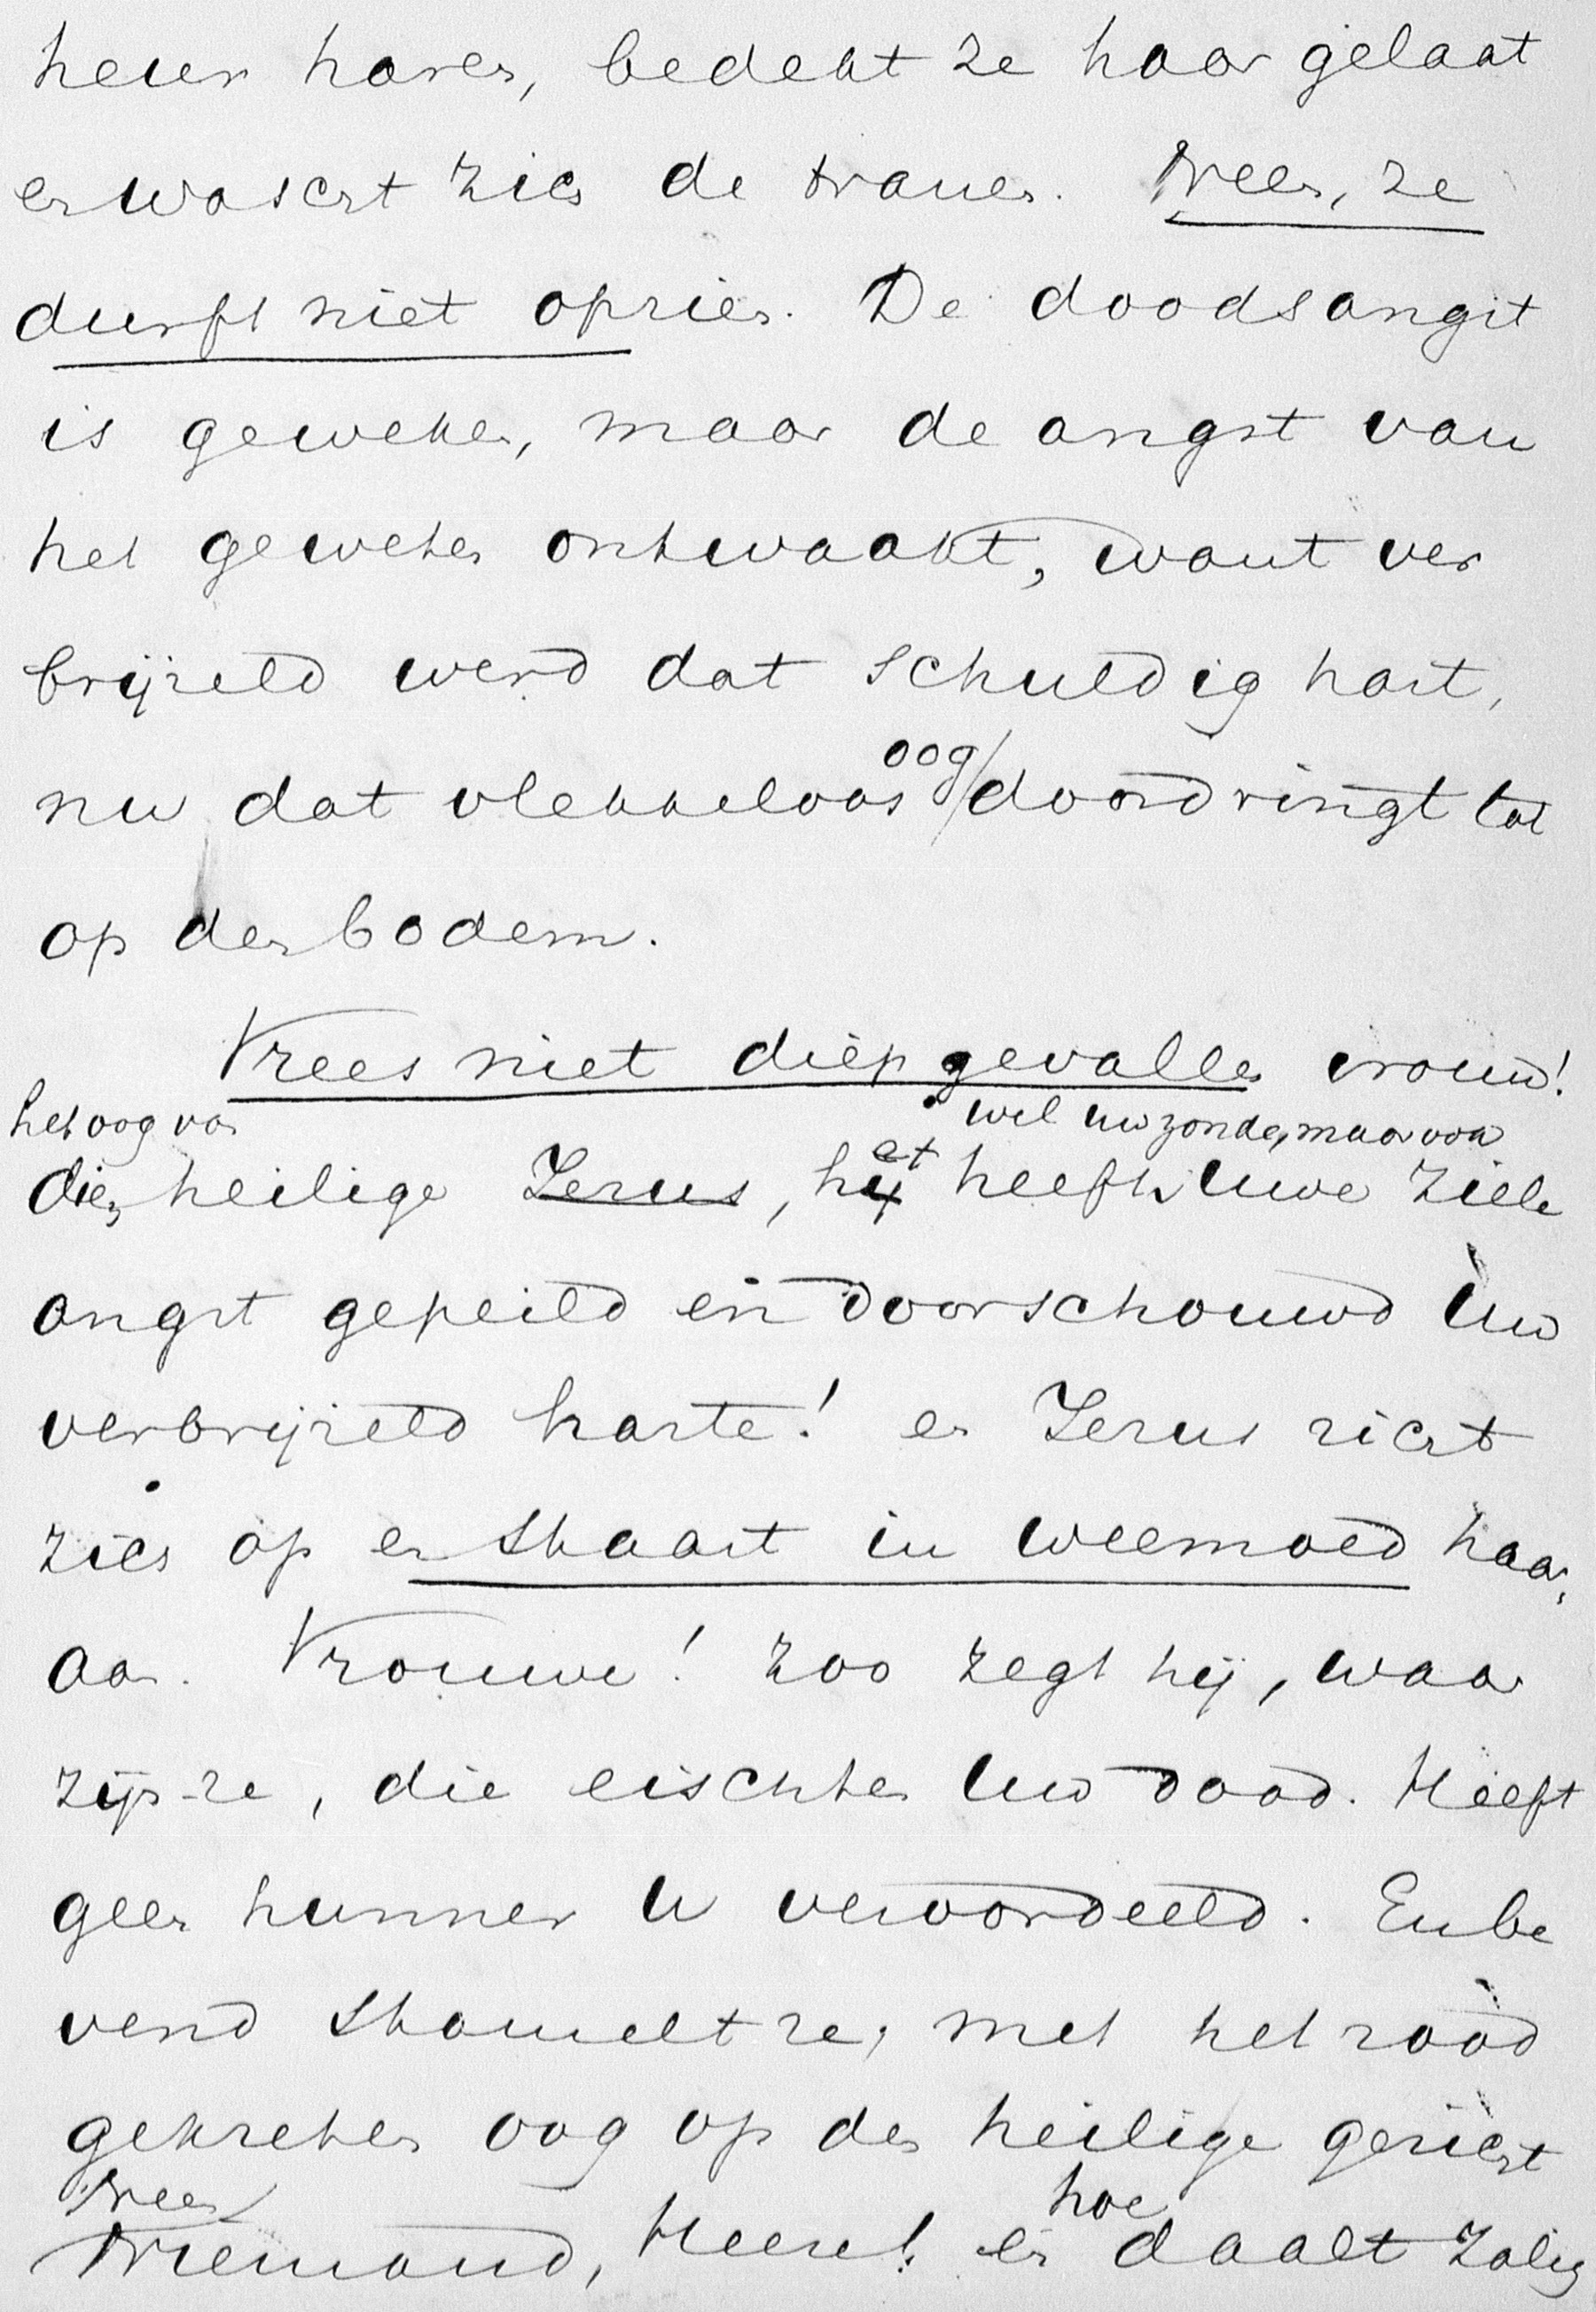 heur haren, bedekt ze haar gelaat
en wascht zich de tranen. Neen, ze
durft niet opzien. De doodsangst
is geweken, maar de angst van
het geweten ontwaakt, want ver
brijzeld werd dat schuldig hart,
nu dat vlekkeloos oog doordringt tot
op den bodem.
Vrees niet diep gevallen vrouw!
het oog van wel uw zonde, maar ook
dien heilige Jezus, hij et heeft uwe ziele
angst gepeild en doorschouwd Uw
verbrijzeld harte! en Jezus richt
zich op en staart in weemoed haar
aan. Vrouwe! zoo zegt hij, waar
zijn ze, die eischten Uw dood. Heeft
geen hunner U veroordeeld. En be
vend stamelt ze, met het rood
gekreten oog op den heilige gericht
Neen hoe
Niemand, Heere! en daalt zalig